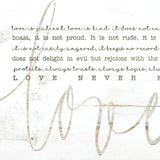 love is patient, love is kind. it does not en
boast, it is not proud. It is not rude, it is
it is not easily angered, it keeps no record
does not delight in evil but rejoices with the
protects, always trusts, always hopes, a
LOVE NEVER F
love